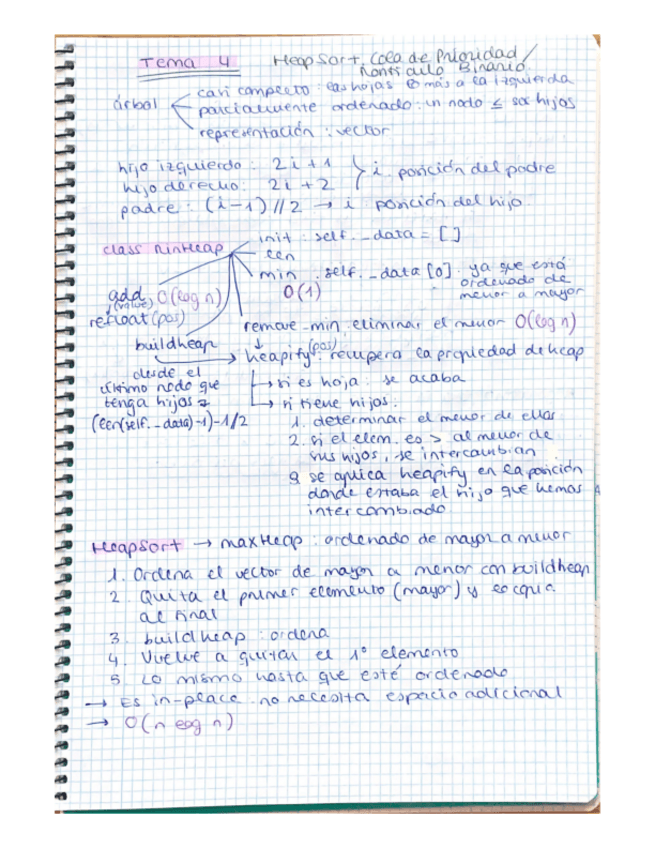 Tema 4 HeapSort, Cola de Prioridad /
Montículo Binario
árbol
casi completo : las hojas + más a la izquierda
parcialmente ordenado : un nodo ≤ sus hijos
representación : vector
hijo izquierdo : 2i + 1
hijo derecho : 2i + 2
i : posición del padre
padre : (i-1)//2 → i : posición del hijo
class MinHeap
init : self._data = []
len
min : self._data[0] ya que está
ordenado de
menor a mayor
O(1)
add O(log n)
(value)
refloat (pos)
remove-min : eliminar el menor O(log n)
buildheap
heapify (pos) : recupera la propiedad de heap
desde el
último nodo que
tenga hijos
(len(self._data)-1)-1/2
↳ si es hoja : se acaba
↳ si tiene hijos :
1. determinar el menor de ellos
2. si el elem. es > al menor de
sus hijos, se intercambian
3. se aplica heapify en la posición
donde estaba el hijo que hemos
intercambiado
HeapSort → maxHeap : ordenado de mayor a menor
1. Ordena el vector de mayor a menor con buildheap
2. Quita el primer elemento (mayor) y lo
al final
3. buildheap : ordena
4. Vuelve a quitar el 1º elemento
5. Lo mismo hasta que esté ordenado
→ Es in-place : no necesita espacio adicional
→ O(n log n)